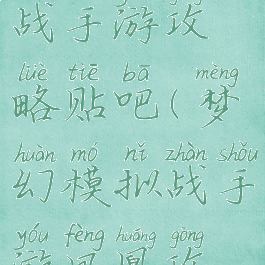 战手游攻
lüè tiē bā mèng
略贴吧(梦
huàn mó nǐ zhàn shǒu
幻模拟战手
yóu fèng huáng gōng
游凤凰攻